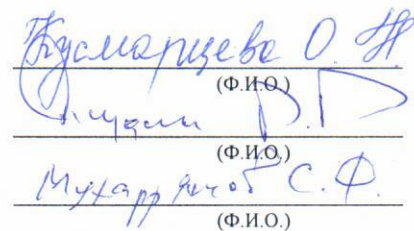 Кусмарцева О. Н.
(Ф.И.О.)
В. Г
(Ф.И.О.)
Мухаррямов С. Ф.
(Ф.И.О.)